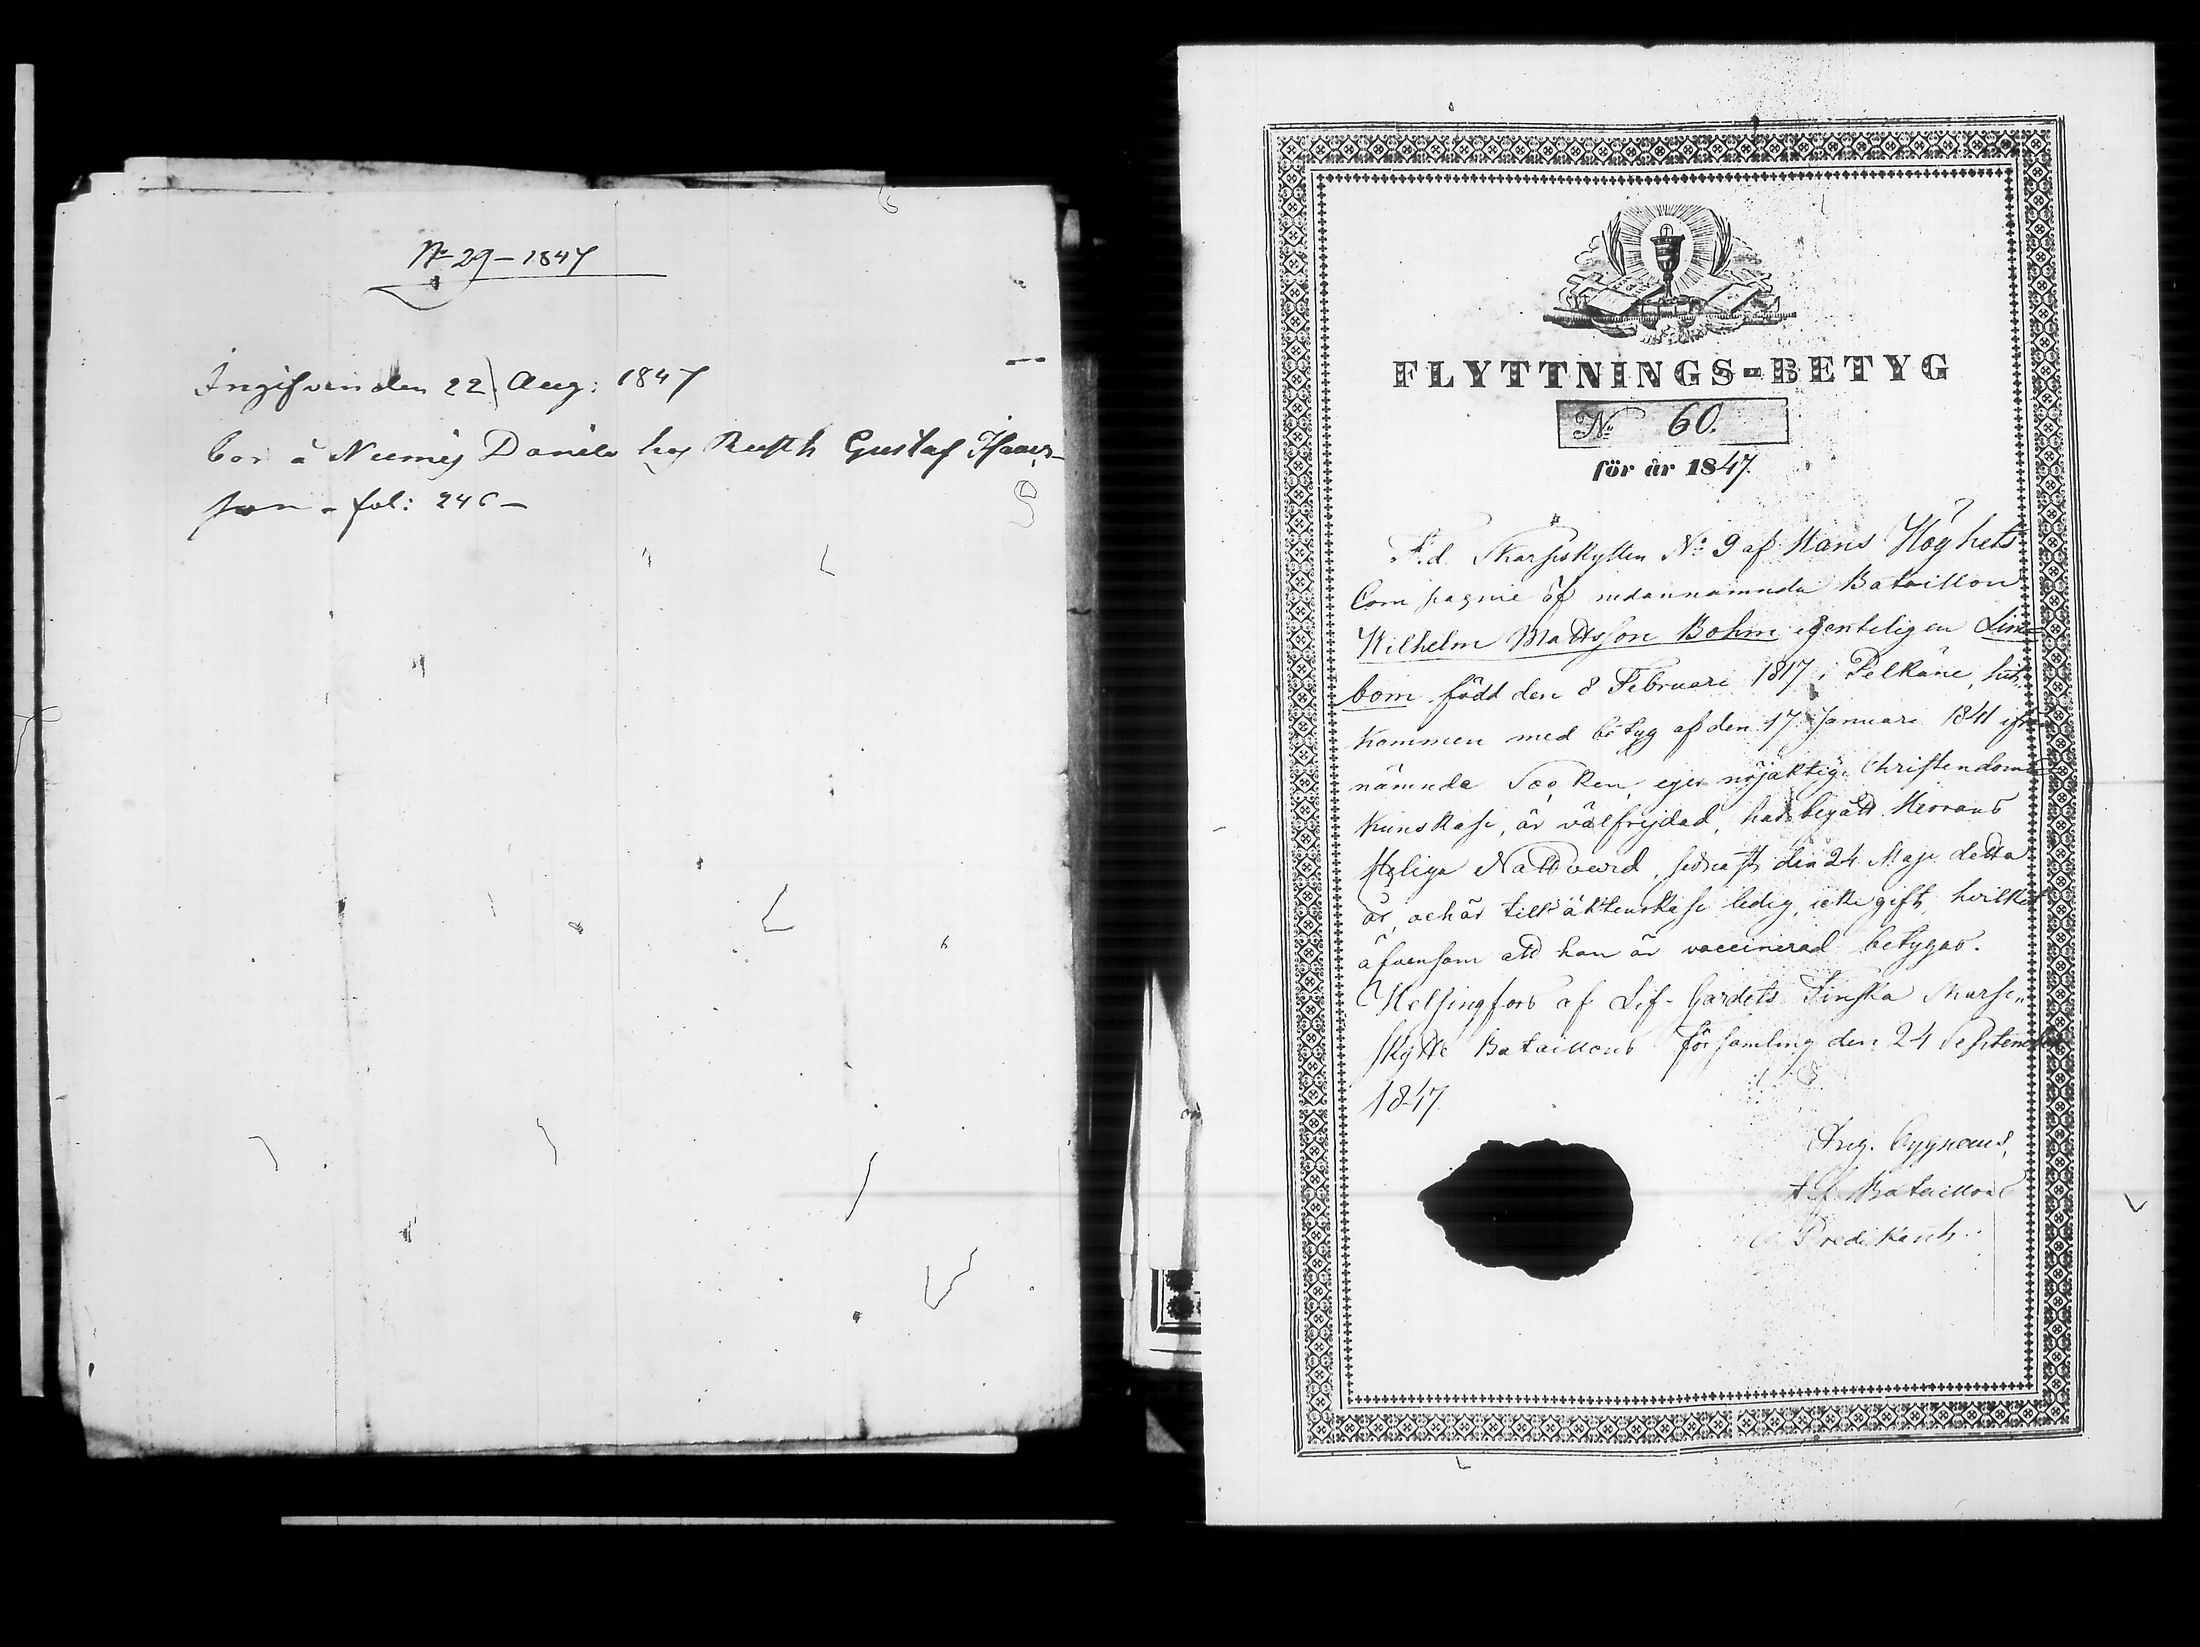 No 29 – 1847
Ingifven den 22 Aug: 1847
bor å Niemis Danils hos Rusth Gustaf Isaacs-
son – fol: 246 –
FLYTTNINGS-BETYG
No 60.
för år 1847.
F.d. Skarpskytten No 9 af Hans Höghets
Compagnie af nedannämnda Bataillon
Wilhelm Mattsson Bohm egentligen Lind-
bom född den 8 Februari 1817 i Pelkäne, hit-
kommen med betyg af den 17 Januari 1841 ifrån
nämnda Socken, eger nöjaktig Christendoms
kunskap, är välfrejdad, har begått Herrans
Heliga Nattvard, sednast den 24 Maji detta
år, och är till äktenskap ledig, icke gift, hvilket
äfvensom att han är vaccinerad betygas.
Helsingfors af Lif-Gardets Finska Skarp-
skytte Bataillons Församling den 24 September
1847.
Aug. Cygnæus,
Bataillons
Predikant.